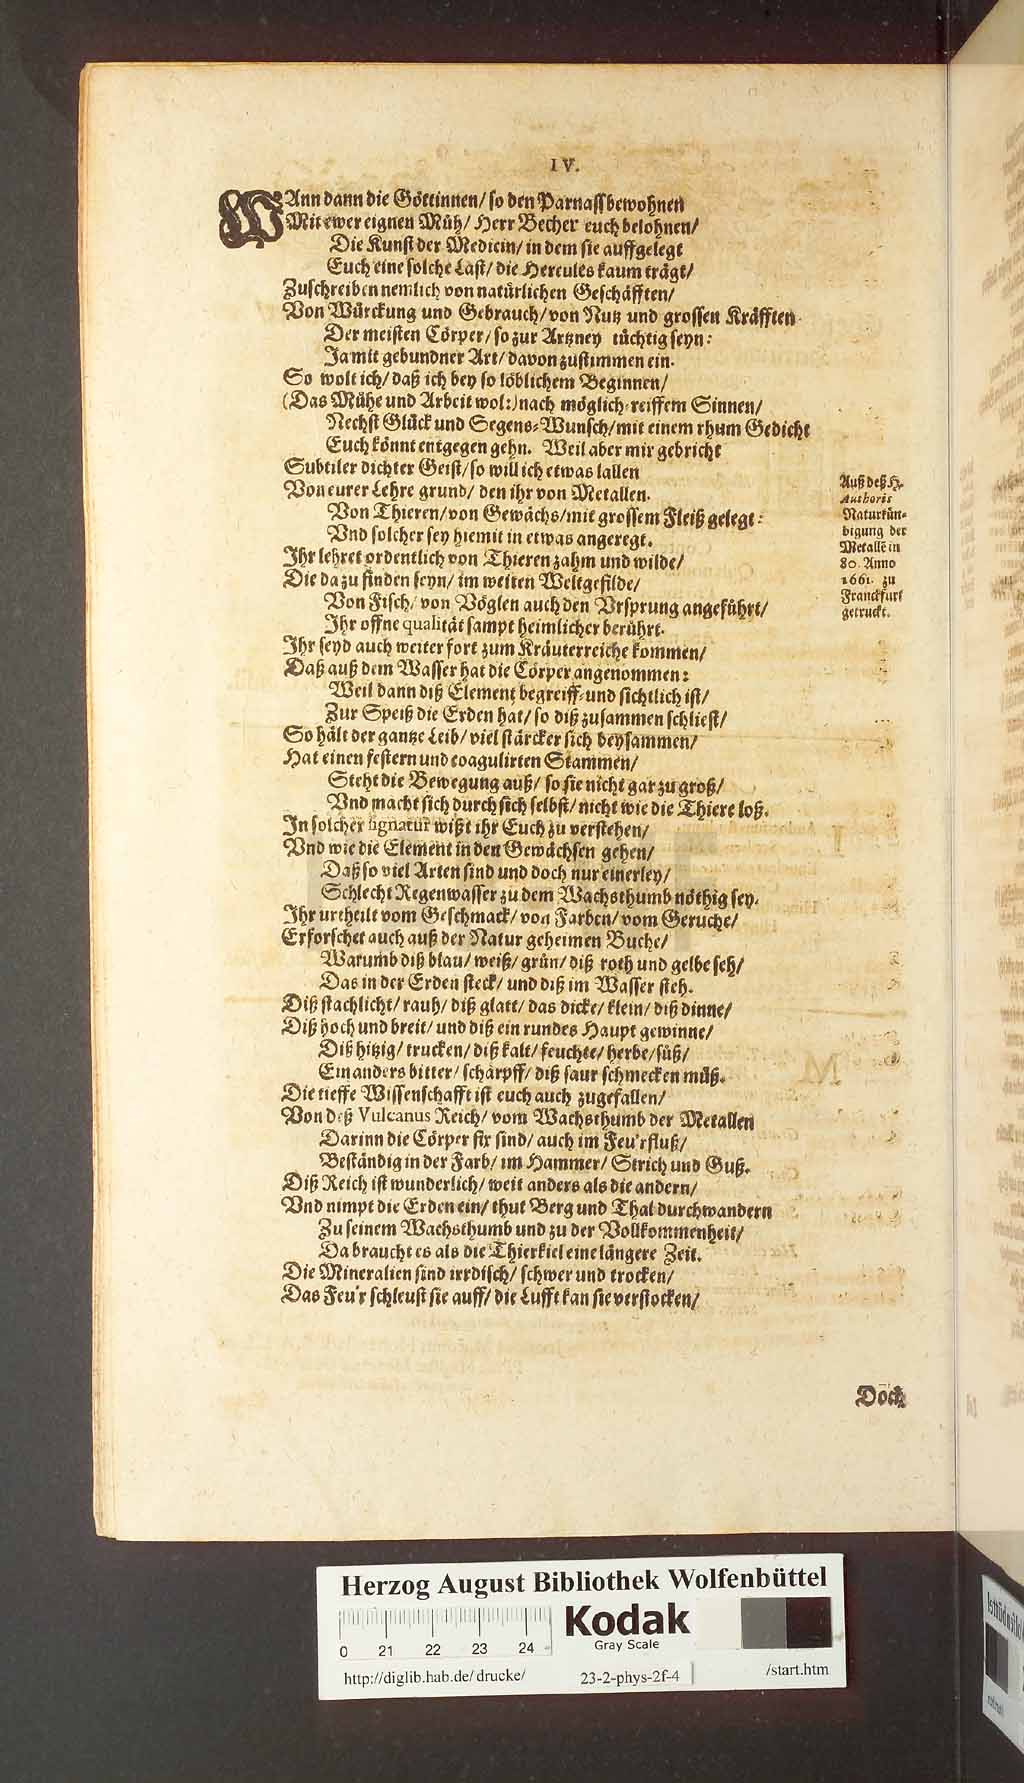 IV.
WAnn dann die Göttinnen/ so den Parnass bewohnen
Mit ewer eignen Müh/ Herr Becher euch belohnen/
Die Kunst der Medicin/ in dem sie auffgelegt
Euch eine solche Last/ die Hercules kaum trägt/
Zuschreiben nemlich von natürlichen Geschäfften/
Von Würckung und Gebrauch/ von Nutz und grossen Kräfften
Der meisten Cörper/ so zur Artzney tüchtig seyn:
Ja mit gebundner Art/ davon zustimmen ein.
So wolt ich/ daß ich bey so löblichem Beginnen/
(Das Mühe und Arbeit wol:) nach möglich-reiffem Sinnen/
Nechst Glück und Segens-Wunsch/ mit einem rhum Gedicht
Euch könnt entgegen gehn. Weil aber mir gebricht
Subtiler dichter Geist/ so will ich etwas lallen
Von eurer Lehre grund/ den ihr von Metallen.
Von Thieren/ von Gewächs/ mit grossem Fleiß gelegt:
Vnd solcher sey hiemit in etwas angeregt.
Ihr lehret ordentlich von Thieren zahm und wilde/
Die da zu finden seyn/ im weiten Weltgefilde/
Von Fisch/ von Vöglen auch den Vrsprung angeführt/
Ihr offne qualität sampt heimlicher berührt.
Ihr seyd auch weiter fort zum Kräuterreiche kommen/
Daß auß dem Wasser hat die Cörper angenommen:
Weil dann diß Element begreiff-und sichtlich ist/
Zur Speiß die Erden hat/ so diß zusammen schliest/
So hält der gantze Leib/ viel stärcker sich beysammen/
Hat einen festern und coagulirten Stammen/
Steht die Bewegung auß/ so sie nicht gar zu groß/
Vnd macht sich durch sich selbst/ nicht wie die Thiere loß.
In solcher signatur wißt ihr Euch zu verstehen/
Vnd wie die Element in den Gewächsen gehen/
Daß so viel Arten sind und doch nur einerley/
Schlecht Regenwasser zu dem Wachsthumb nöthig sey.
Ihr urtheilt vom Geschmack/ von Farben/ vom Geruche/
Erforschet auch auß der Natur geheimen Buche/
Warumb diß blau/ weiß/ grün/ diß roth und gelbe seh/
Das in der Erden steck/ und diß im Wasser steh.
Diß stachlicht/ rauh/ diß glatt/ das dicke/ klein/ diß dinne/
Diß hoch und breit/ und diß ein rundes Haupt gewinne/
Diß hitzig/ trucken/ diß kalt/ feuchte/ herbe/ süß/
Ein anders bitter/ schärpff/ diß saur schmecken müß.
Die tieffe Wissenschafft ist euch auch zugefallen/
Von deß Vulcanus Reich/ vom Wachsthumb der Metallen
Darinn die Cörper fix sind/ auch im Feu'r fluß/
Beständig in der Farb/ im Hammer/ Strich und Guß.
Diß Reich ist wunderlich/ weit anders als die andern/
Vnd nimpt die Erden ein/ thut Berg und Thal durchwandern
Zu seinem Wachsthumb und zu der Vollkommenheit/
Da braucht es als die Thierkiel eine längere Zeit.
Die Mineralien sind irrdisch/ schwer und trocken/
Das Feu'r schleust sie auff/ die Lufft kan sie verstocken/
Auß deß H.
Authoris
Naturkün-
digung der
Metallē in
80. Anno
1661. zu
Franckfurt
getruckt.
Doch
Herzog August Bibliothek Wolfenbüttel
Kodak
Gray Scale
0 21 22 23 24
http://diglib.hab.de/drucke/ 23-2-phys-2f-4 /start.htm